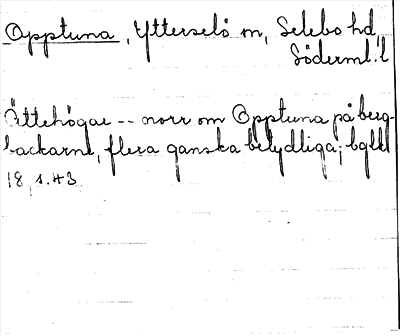 Opptuna, Ytterselö sn, Selebo hd,
Söderml:s l
Ättehögar -- norr om Opptuna på berg-
backarne, flera ganska betydliga;
18, s. 43